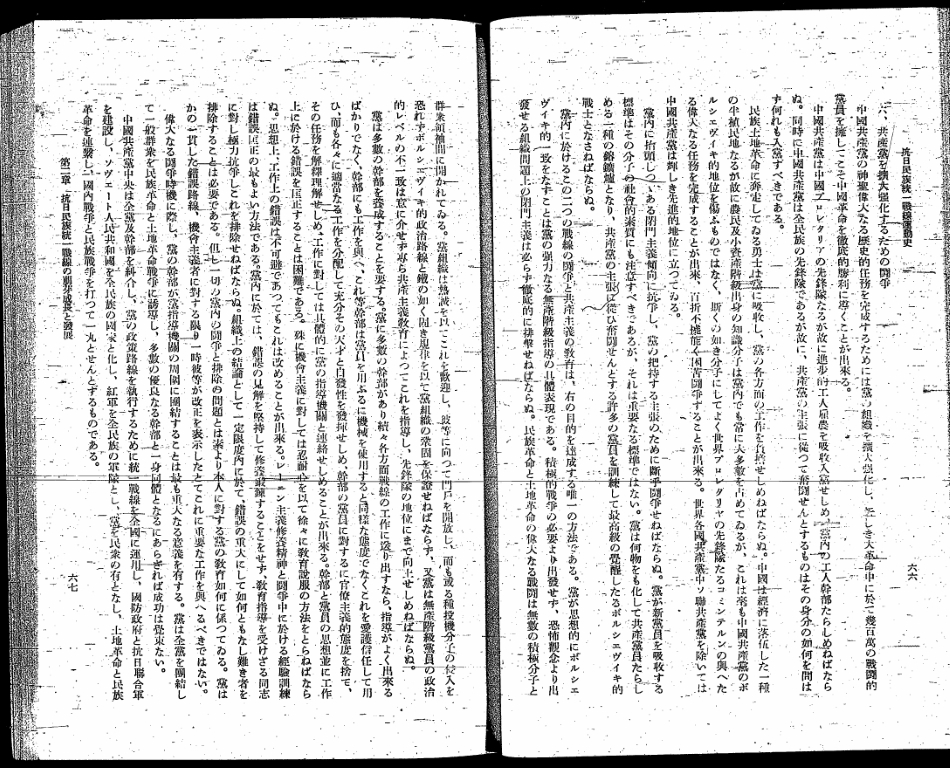 抗日民族統一戰線運動史
六六
八、共產黨を擴大強化するための鬪爭
中國共產黨の神聖偉大なる歷史的任務を完成するためには黨の組織を擴大强化し、正しき大革命中に於て幾百萬の戰鬪的
黨員を擁してこそ中國革命を徹底的勝利に導くことが出來る。
中國共產黨は中國プロレタリアの先鋒隊たるが故に進步的工人雇農を吸收入黨せしめ、黨內の工人幹部たらしめねばなら
ぬ。同時に中國共產黨は全民族の先鋒隊であるが故に、共產黨の主張に從つて奮鬪せんとするものはその身分の如何を問は
ず何れも入黨すべきである。
民族土地革命に奔走してゐる勇士は黨に吸收し、黨の各方面の工作を負擔せしめねばならぬ。中國は經濟に落伍した一種
の半植民地なるが故に農民及小資產階級出身の知識分子は黨內でも常に大多數を占めてゐるが、これは毫も中國共產黨のボ
ルシェヴイキ的地位を傷ふものではなく、斯くの如き分子にしてよく世界プロレタリヤの先鋒隊たるコミンテルンの與へた
る偉大なる任務を完成することが出來、百折不撓能く困苦鬪爭することが出來る。世界各國共產黨中ソ聯共產黨を除いては
中國共產黨は輝しき先進的地位に立つてゐる。
黨內に抬頭しつゝある閉門主義傾向に抗爭し、黨の把持する主張のために斷乎鬪爭せねばならぬ。黨が新黨員を吸收する
標準はその分子の社會的素質にも注意すべきであるが、それは重要なる標準ではない。黨は何物をも化して共產黨員たらし
める一種の鎔鑛爐となり、共產黨の主張に從ひ奮鬪せんとする許多の黨員を訓練して最高級の覺醒したるボルシェヴイキ的
戰士となさねばならぬ。
黨內に於けるこの二つの戰線の鬪爭と共產主義の敎育は、右の目的を達成する唯一の方法である。黨が思想的にボルシェ
ヴイキ的一致をなすことは黨の强力なる無產階級指導の具體表現である。積極的戰爭の必要より出發せず、恐怖觀念より出
發せる組織問題上の閉門主義は必らず徹底的に排擊せねばならぬ。民族革命と土地革命の偉大なる戰鬪は無數の積極分子と
群衆領袖間に開かれてゐる。黨組織は熱誠を以てこれを歡迎し、彼等に向つて門戶を開放し、而も或る種投機分子の侵入を
恐れずボルシェヴイキ的政治路線と鐵の如く固き規律を以て黨組織の鞏固を保證せねばならず、又黨は無產階級黨員の政治
的レベルの不一致を意に介せず專ら共產主義敎育によつてこれを指導し、先鋒隊の地位にまで向上せしめねばならぬ。
黨は多數の幹部を養成することを要する。黨に多數の幹部があり續々各方面戰線の工作に送り出すなら、指導がよく出來る
ばかりでなく、幹部にも工作を與へ、これ等幹部は黨員を用ふるに機械を使用すると同樣な態度でなくこれを愛護信任して用
ひ、而も各々に適當なる工作を分配して充分その天才と自發性を發揮せしめ、幹部の黨員に對するに官僚主義的態度を捨て、
その任務を解釋理解せしめ、工作に對しては具體的に黨の指導機關と連絡せしめることが出來る。幹部と黨員の思想並に工作
上に於ける錯誤を匡正することは困難である。殊に機會主義に對しては忍耐心を以て徐々に敎育說服の方法をとらねばなら
ぬ。思想上、工作上の錯誤は不可避であつてもこれは改めることが出來る。レーニン主義修養精神と鬪爭中に於ける經驗訓練
は錯誤匡正の最もよい方法である。黨內に於ては、錯誤の見解を堅持して修養鍛鍊することをせず、敎育指導を受けざる同志
に對し極力抗爭しこれを排除せねばならぬ。組織上の結論として一定限度內に於て、錯誤の重大にして如何ともなし難き者を
排除することは必要である。但し一切の黨內の鬪爭と排除の問題とは素より本人に對する黨の敎育如何に係つてゐる。黨は
かの一貫した錯誤路線、機會主義者に對する限り一時彼等が改正を表示したとてこれに重要な工作を與へるべきではない。
偉大なる鬪爭時機に際し、黨の幹部が黨指導機關の周圍に團結することは最も重大なる意義を有する。黨は全黨を團結し
て一般群衆を民族革命と土地革命戰爭に誘導し、多數の優良なる幹部と一身同體となるにあらざれば成功は覺束ない。
中國共產黨中央は全黨及幹部を糾合し、黨の政策路線を執行するために統一戰線を全國に運用し、國防政府と抗日聯合軍
を建設し、ソヴェート人民共和國を全民族の國家と化し、紅軍を全民族の軍隊とし、黨を民衆の有となし、土地革命と民族
革命を連繫し、國內戰爭と民族戰爭を打つて一丸とせんとするものである。
第二章 抗日民族統一戰線の創立成長と發展
六七